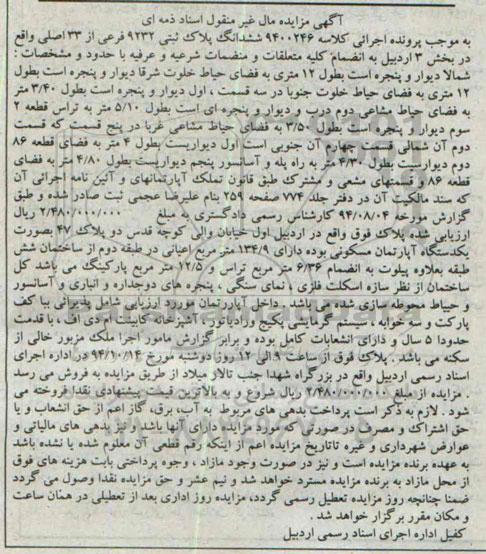 آگهی مزایده مال غیر منقول اسناد ذمه ای
به موجب پرونده اجرائی کلاسه ۹۴۰۰۲۴۶ ششدانگ پلاک ثبتی ۹۲۳۲ فرعی از ۳۳ اصلی واقع
در بخش ۳ اردبیل به انضمام کلیه متعلقات و منضمات شرعیه و عرفیه با حدود و مشخصات :
شمالا دیوار و پنجره است بطول ۱۲ متری به فضای حیاط خلوت شرقا دیوار و پنجره است بطول
۱۲ متری به فضای حیاط خلوت جنوبا در سه قسمت ، اول دیوار و پنجره است بطول ۳/۴۰ متر
به فضای حیاط مشاعی دوم درب و دیوار و پنجره ای است بطول ۵/۱۰ متر به تراس قطعه ۲
سوم دیوار و پنجره است بطول ۳/۵۰ به فضای حیاط مشاعی غربا در پنج قسمت که قسمت
دوم آن شمالی قسمت چهارم آن جنوبی است اول دیواریست بطول ۴ متر به فضای قطعه ۸۶
دوم دیواریست بطول ۴/۳۰ متر به راه پله و آسانسور پنجم دیواریست بطول ۴/۸۰ متر به فضای
قطعه ۸۶ و قسمتهای مشعی و مشترک طبق قانون تملک آپارتمانهای و آئین نامه اجرائی آن
که سند مالکیت آن در دفتر جلد ۷۷۴ صفحه ۲۵۹ بنام علیرضا عجمی ثبت صادر شده و طبق
گزارش مورخه ۹۴/۰۸/۰۴ کارشناس رسمی دادگستری به مبلغ ۲/۴۸۰/۰۰۰/۰۰۰ ریال
ارزیابی شده پلاک فوق واقع در اردبیل اول خیابان والی کوچه قدس دو پلاک ۴۷ بصورت
یکدستگاه آپارتمان مسکونی بوده دارای ۱۳۴/۹ متر مربع اعیانی در طبقه دوم از ساختمان شش
طبقه بعلاوه پیلوت به انضمام ۶/۳۶ متر مربع تراس و ۱۲/۵ متر مربع پارکینگ می باشد کل
ساختمان از نظر سازه اسکلت فلزی ، نمای سنگی ، پنجره های دوجداره و انباری و آسانسور
و حیاط محوطه سازی شده می باشد . داخل آپارتمان موررد ارزیابی شامل پذیرائی با کف
پارکت و سه خوابه ، سیستم گرمایشی پکیج ورادیاتور ، آشپزخانه کابینت ام دی اف ، با قدمت
حدودا ۵ سال و دارای انشعابات کامل بوده و برابر گزارش مامور اجرا ملک مزبور خالی از
سکنه می باشد . پلاک فوق از ساعت ۹ الی ۱۲ روز دوشنبه مورخ ۹۴/۱۰/۱۴ در اداره اجرای
اسناد رسمی اردبیل واقع در بزرگراه شهدا جنب تالار میلاد از طریق مزایده به فروش می رسد
. مزایده از مبلغ ۲/۴۸۰/۰۰۰/۰۰۰ ریال شروع و به بالاترین قیمت پیشنهادی نقدا فروخته می
شود . لازم به ذکر است پرداخت بدهی های مربوط به آب، برق، گاز اعم از حق انشعاب و یا
حق اشتراک و مصرف در صورتی که مورد مزایده دارای آنها باشد و نیز بدهی های مالیاتی و
عوارض شهرداری و غیره تاتاریخ مزایده اعم از اینکه رقم قطعی آن معلوم شده یا نشده باشد
به عهده برنده مزایده است و نیز در صورت وجود مازاد ، وجوه پرداختی بابت هزینه های فوق
از محل مازاد به برنده مزایده مسترد خواهد شد و نیم عشر و حق مزایده نقدا وصول می گردد
ضمنا چنانچه روز مزایده تعطیل رسمی گردد، مزایده روز اداری بعد از تعطیلی در همان ساعت
و مکان مقرر برگزار خواهد شد .
کفیل اداره اجرای اسناد رسمی اردبیل